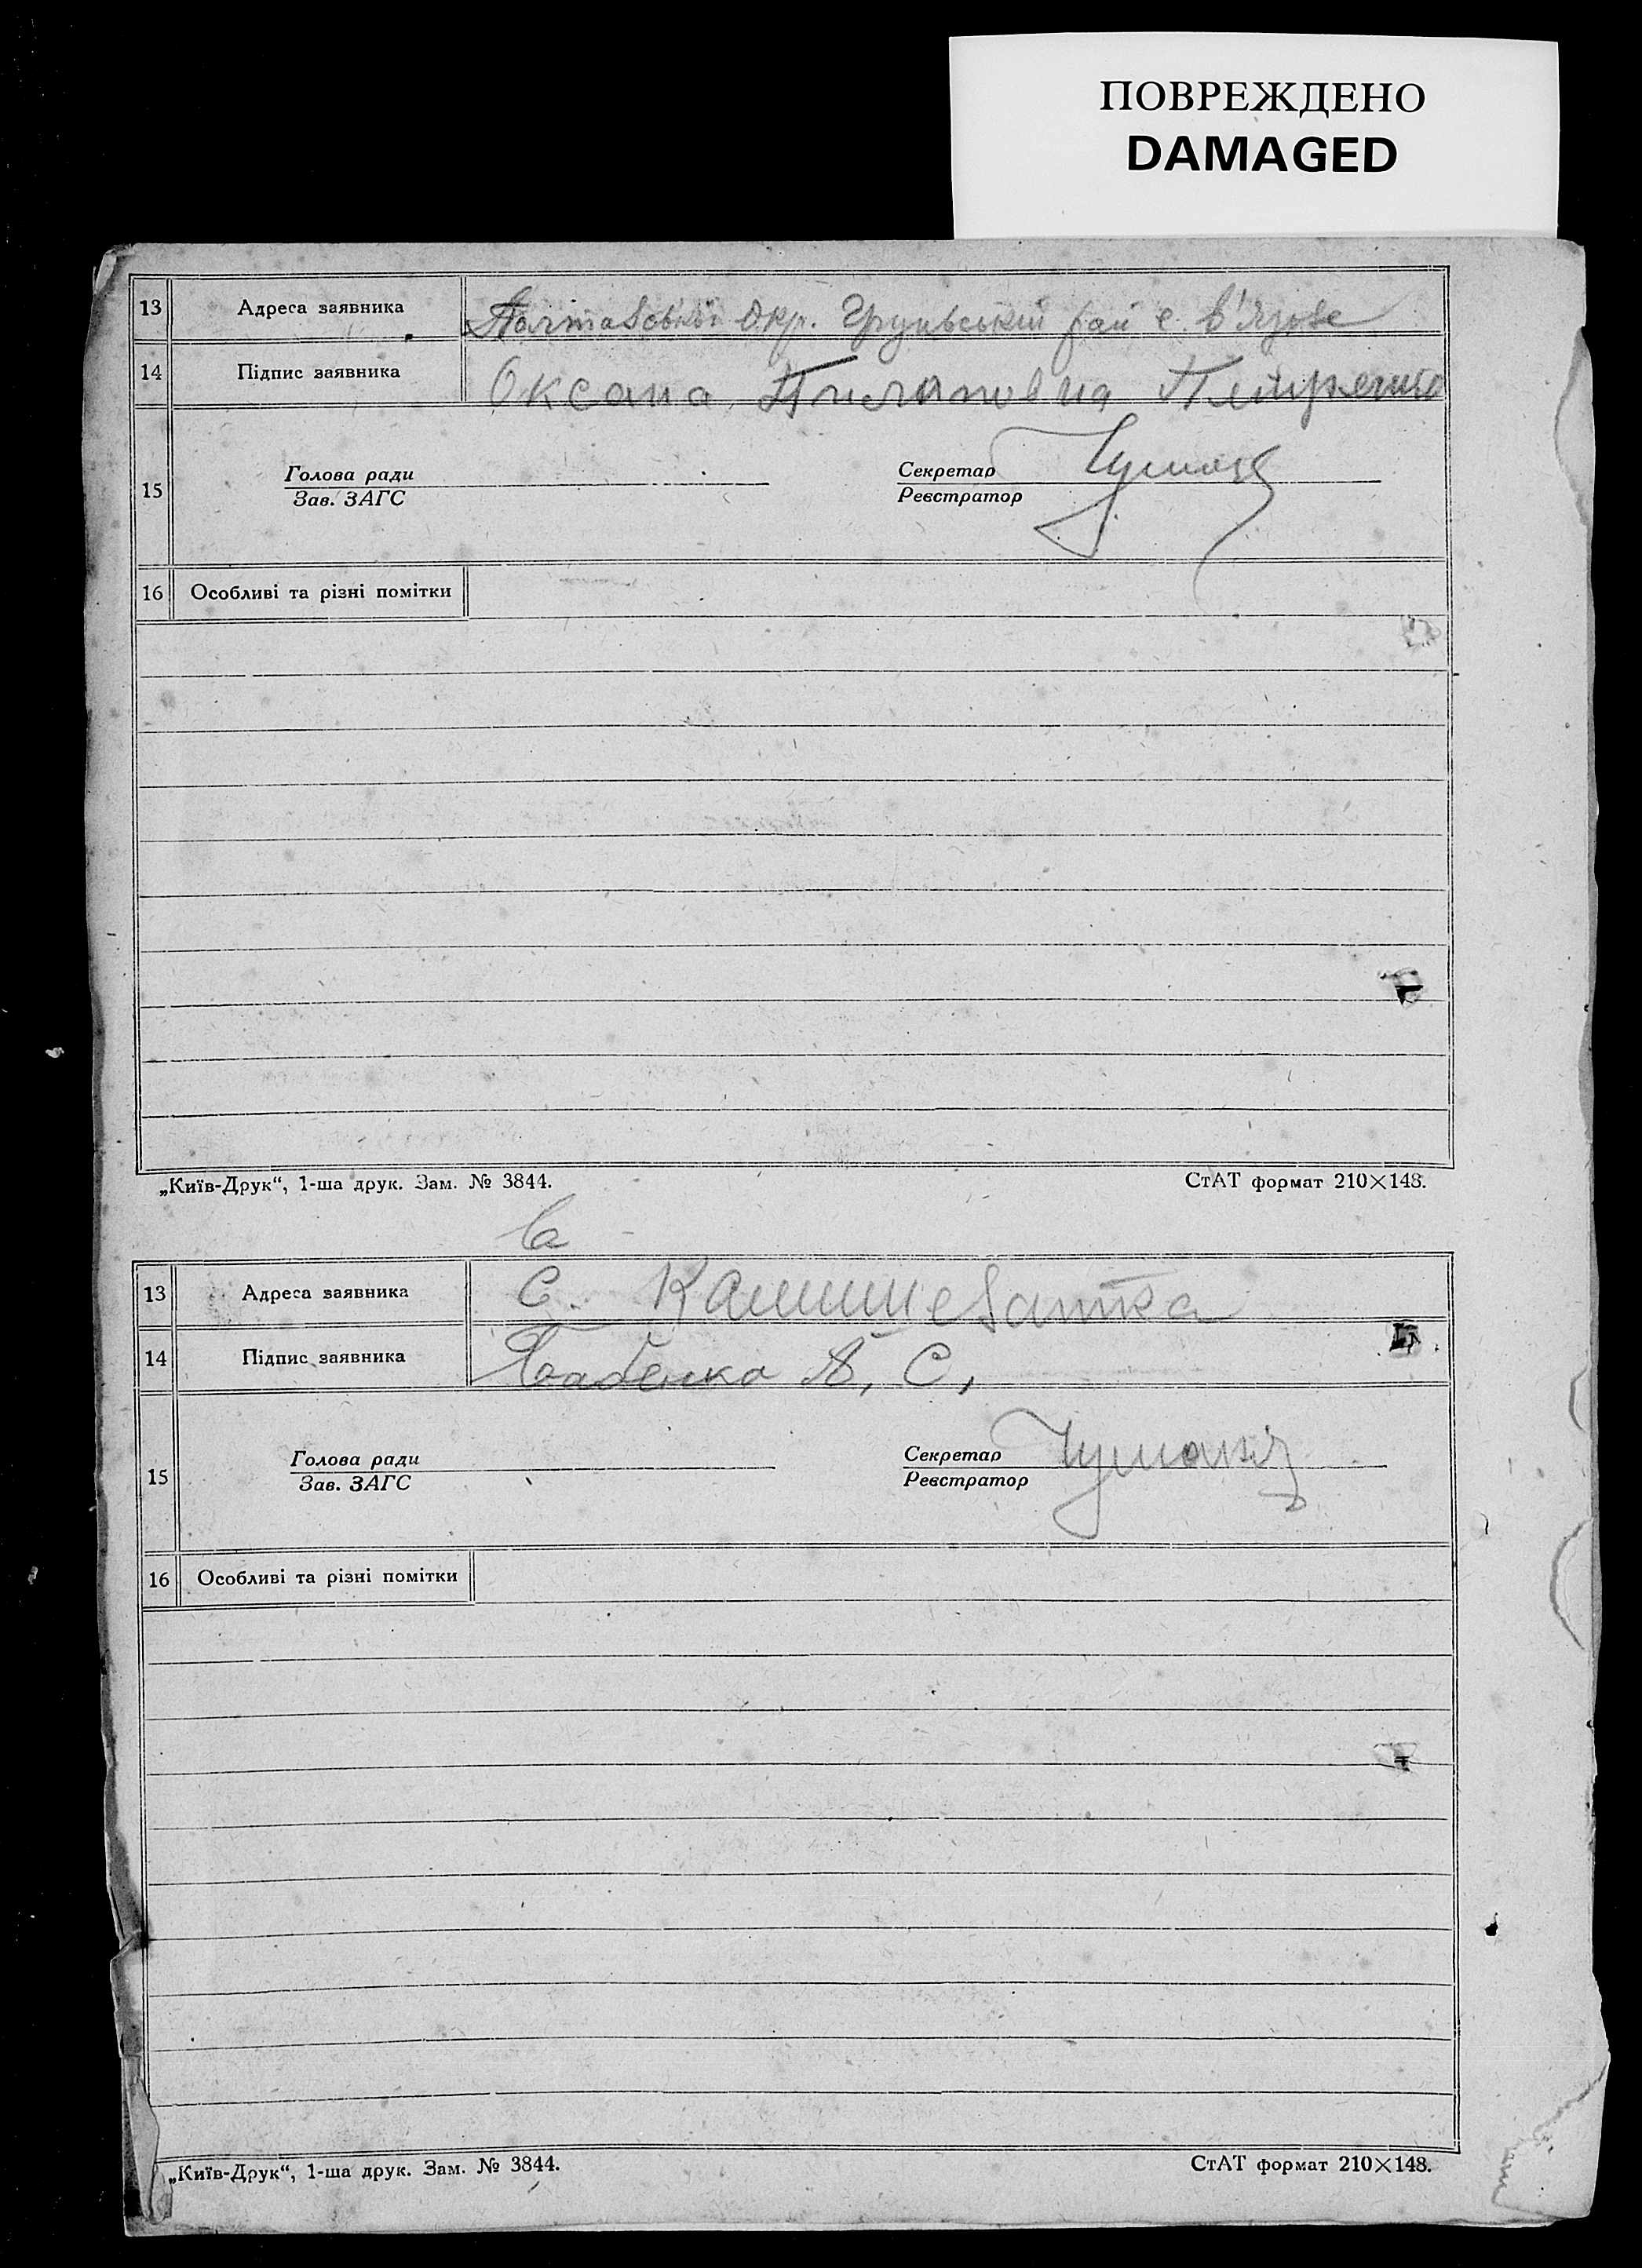 ПОВРЕЖДЕНО
DAMAGED
13 Адреса заявника Полтавської Окр. Грунський рай с. В'язове
14 Підпис заявника Оксана Пилиповна
15 Голова ради Секретар
Зав. ЗАГС Реєстратор
16 Особливі та різні помітки
„Київ-Друк“, 1-ша друк. Зам. № 3844. СтАТ формат 210×148.
13 Адреса заявника С. Камишеватка
14 Підпис заявника Бабенко А, С,
15 Голова ради Секретар
Зав. ЗАГС Реєстратор
16 Особливі та різні помітки
„Київ-Друк“, 1-ша друк. Зам. № 3844. СтАТ формат 210×148.